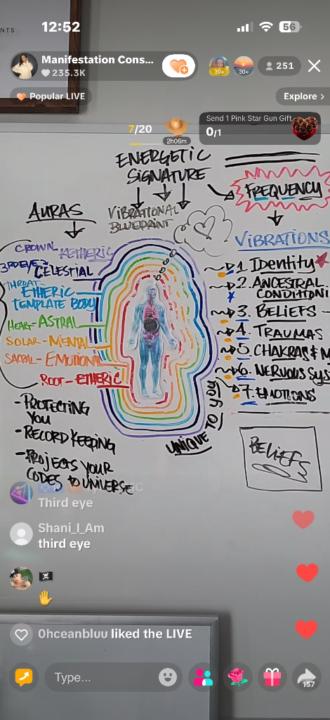 12:52
56
Manifestation Cons...
235.3K
251
Popular LIVE
Explore >
7/20
2h06m
Send 1 Pink Star Gun Gift
0/1
ENERGETIC
SIGNATURE
FREQUENCY
AURAS
VIBRATIONAL
BLUEPRINT
VIBRATIONS
CROWN - KETHERIC
3RD EYE - CELESTIAL
THROAT - ETHERIC
TEMPLATE BODY
HEART - ASTRAL
SOLAR - MENTAL
SACRAL - EMOTIONAL
ROOT - ETHERIC
1. Identity
2. ANCESTRAL
CONDITIONI
3. BELIEFS -
4. TRAUMAS
5. CHAKRAS & M
6. NERVOUS SYS
7. EMOTIONS
- PROTECTING
YOU
- RECORD KEEPING
- PROJECTS YOUR
CODES TO UNIVERSE
UNIQUE TO YOU
BELIEFS
Third eye
Shani_I_Am
third eye
0hceanbluu liked the LIVE
Type...
157